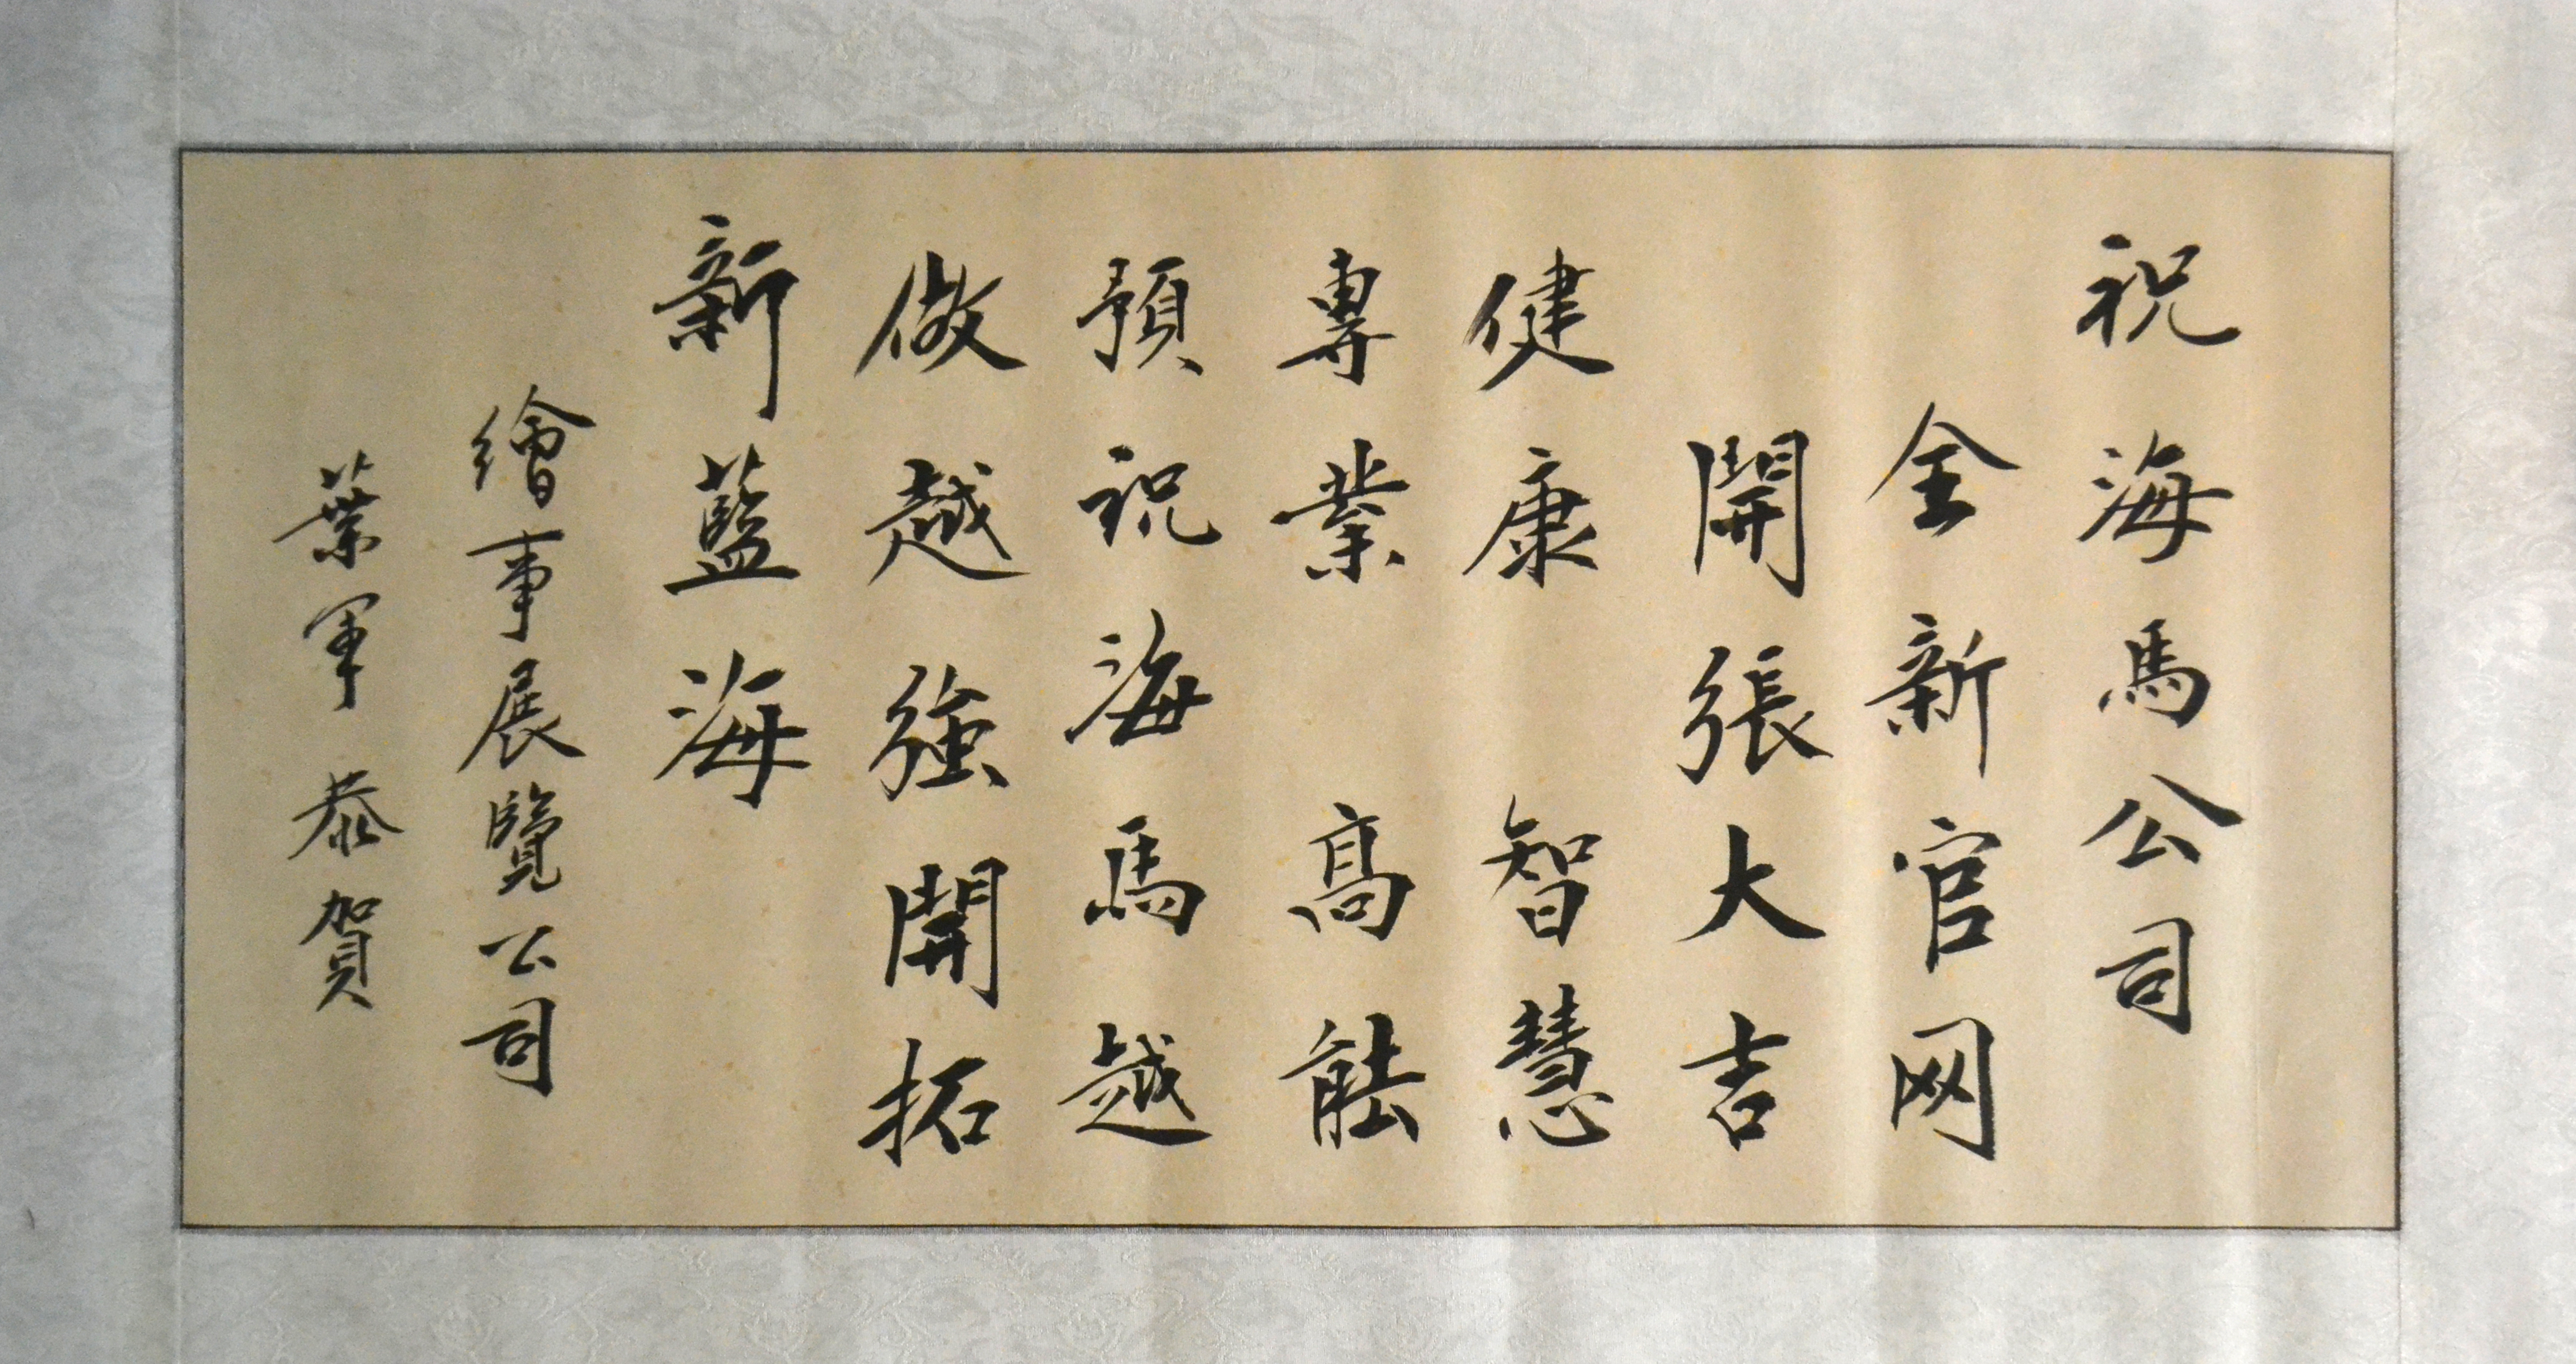 祝海馬公司
全新官网
開張大吉
健康 智慧
專業 高能
預祝海馬越
做越強開拓
新藍海
繪事展覽公司
葉軍 恭賀